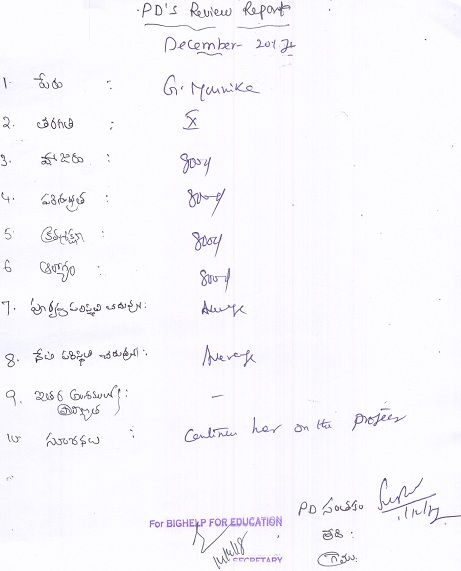 PD's Review Report
December-
1. పేరు : G. Mounika
2. తరగతి : X
3. హాజరు : good
4. పరిశుభ్రత : good
5. క్రమశిక్షణ : good
6. ఆరోగ్యం : good
7. చదువు: Average
8. చదువు: Average
9. ఇతర : -
10. సూచనలు : Continue her on the project
PD సంతకం
తేది :
గ్రామం:
For BIGHELP FOR EDUCATION
SECRETARY